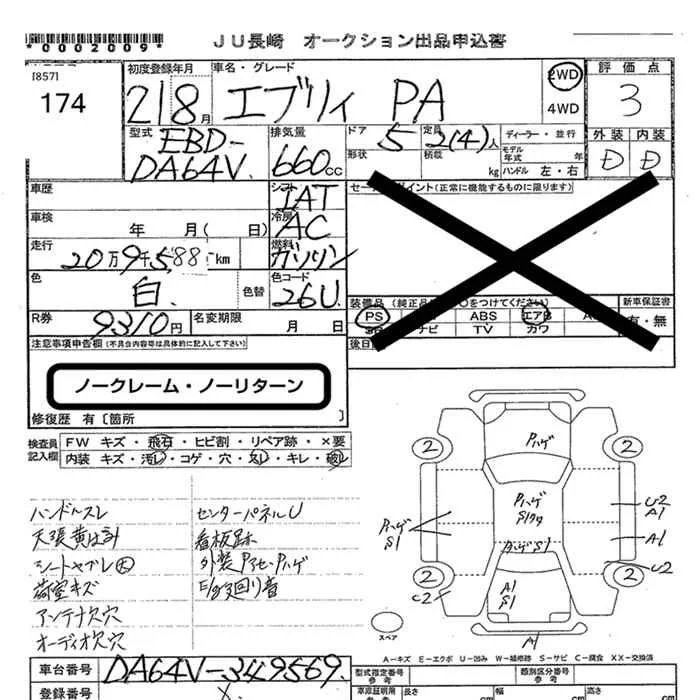 *0002009*
JU長崎 オークション出品申込書
[857]
174
初度登録年月 車名・グレード 2WD 評価点
21 8月 エブリイ PA 4WD 3
型式 EBD-DA64V 排気量 660cc
ドア 5 定員 2(4)人 ディーラー・並行 外装 内装
形状 積載 kg モデル年式 年 D D
ハンドル 左・右
車歴 シフト IAT
車検 年 月( 日) 冷房 AC
走行 20万9千588km 燃料 ガソリン
色 白 色替 色コード 26U
(正常に機能するものに限ります)
R券 9310円 名変期限 月 日
新車保証書
PS ABS エアB
ナビ TV カワ 有・無
注意事項申告欄(不具合内容等は具体的に記入して下さい)
ノークレーム・ノーリターン
修復歴 有〔箇所 〕
検査員記入欄 FW キズ・飛石・ヒビ割・リペア跡・×要
内装 キズ・汚レ・コゲ・穴・スレ・キレ・破レ
ハンドルスレ
天張黄ばミ汁
シートヤブレ大
荷室キズ
アンテナ欠穴
オーディオ欠穴
センターパネルU
看板跡
外装Pアセ・Pハゲ
E/g回り音
2 Pハゲ 2
Pハゲ
Pハゲ S1 U2 A1
Pハゲ S1 A1
2 2 U2
U2 A1 S1
A1
スペア
A-キズ E-エクボ U-凹み W-補修跡 S-サビ C-腐食 XX-交換済
車台番号 DA64V-349569
型式指定番号 参考 類別区分番号 参考
登録番号
車庫証明用 参考 長さ cm 幅 cm 高さ cm